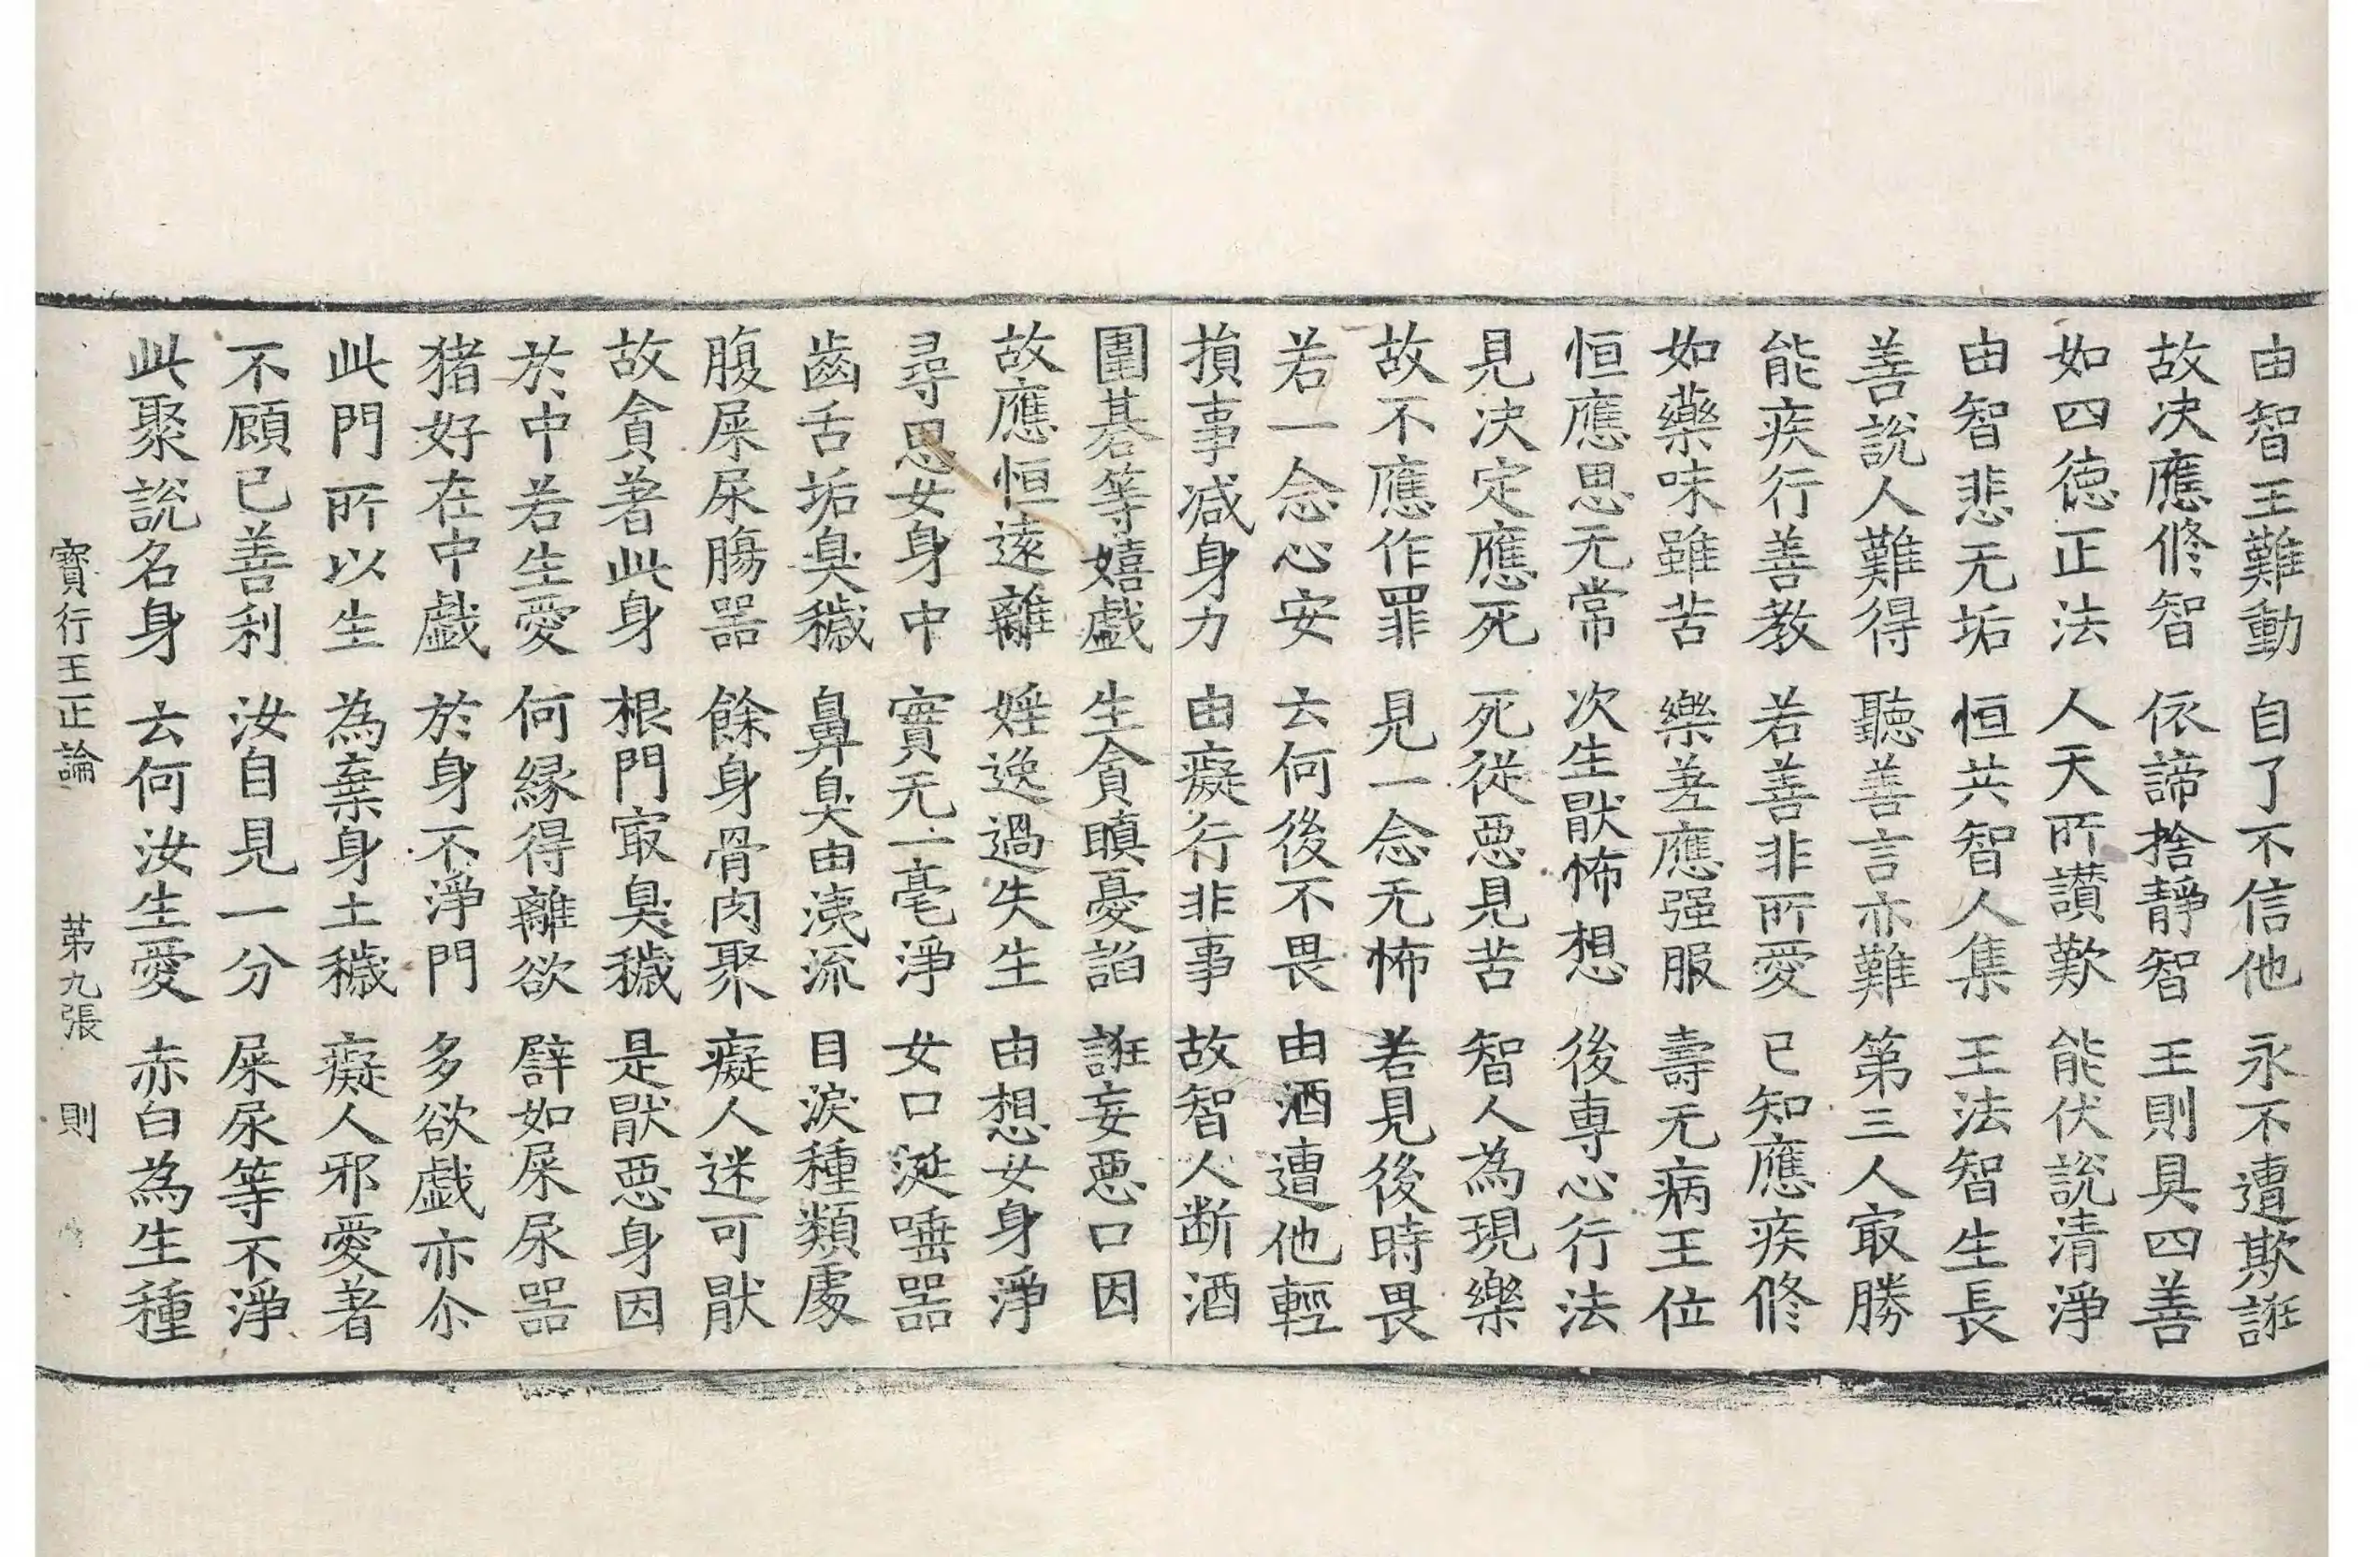 由智王難動 自了不信他 永不遭欺誑
故决應修智 依諦捨靜智 王則具四善
如四德正法 人天所讃歎 能伏說清淨
由智悲无垢 恒共智人集 王法智生長
善說人難得 聽善言亦難 第三人㝡勝
能疾行善教 若善非所愛 已知應疾修
如藥味雖苦 樂差應强服 壽无病王位
恒應思无常 次生猒怖想 後專心行法
見决定應死 死從惡見苦 智人為現樂
故不應作罪 見一念无怖 若見後時畏
若一念心安 去何後不畏 由酒遭他輕
損事減身力 由癡行非事 故智人断酒
圍碁等嬉戲 生貪瞋憂諂 誑妄惡口因
故應恒遠離 婬逸過失生 由想女身淨
尋思女身中 實无一毫淨 女口涎唾器
齒舌垢臭穢 鼻臭由洟流 目淚種類處
腹屎尿膓器 餘身骨肉聚 癡人迷可猒
故貪著此身 根門㝡臭穢 是猒惡身因
於中若生愛 何緣得離欲 譬如屎尿器
猪好在中戲 於身不淨門 多欲戲亦尒
此門所以生 為棄身土穢 癡人邪愛著
不顧已善利 汝自見一分 屎尿等不淨
此聚說名身 去何汝生愛 赤白為生種
寶行王正論 苐九張 則